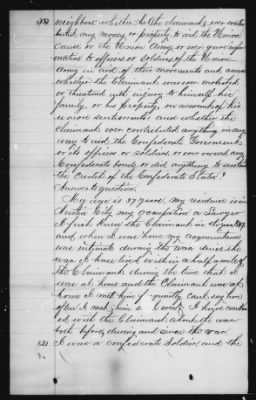 (38) neighbors whether to the claimants ever contri-
buted any money or property to aid the Union
Cause or the Union Army or ever gave infor-
mation to officers or Soldiers of the Union
Army in aid of their movements and
whether the Claimant was ever molested
or threatened with injury to himself his
family, or his property, on account of his
union sentiments and whether the
Claimant ever contributed anything in any
way to aid the Confederate Government
or its officers or soldiers or ever owned any
Confederate bonds or did anything to sustain
the Credit of the Confederate States?
Answer to question.
My age is 37 years, my residence is in
City my occupation a
I first knew the Claimant in
and when I was home my acquaintance
was intimate during the war since the
war I have lived within a half mile of
the Claimant during the time that I
was at home and the Claimant was at
home I met him frequently cant say how
often I met him I have convers
ed with the Claimant about the war
both before, during and since the war
(2) I was a confederate Soldier and the